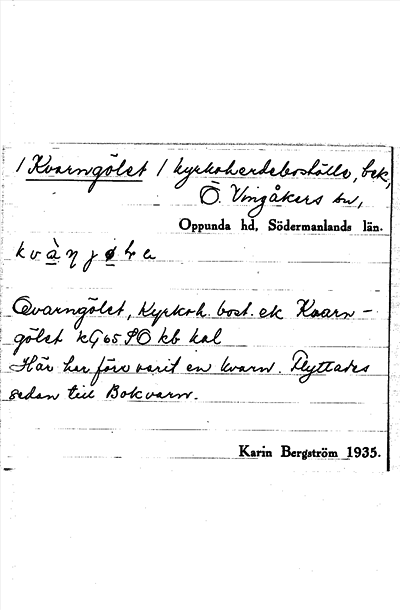 / Kvarngölet / kyrkoherdeboställe, bek,
Ö. Vingåkers sn,
Oppunda hd, Södermanlands län.
Qvarngölet, Kyrkoh. bost. ek Kvarn-
gölet kG 65 SO kb kal
Här har förr varit en kvarn. Flyttades
sedan till Bokvarn.
Karin Bergström 1935.